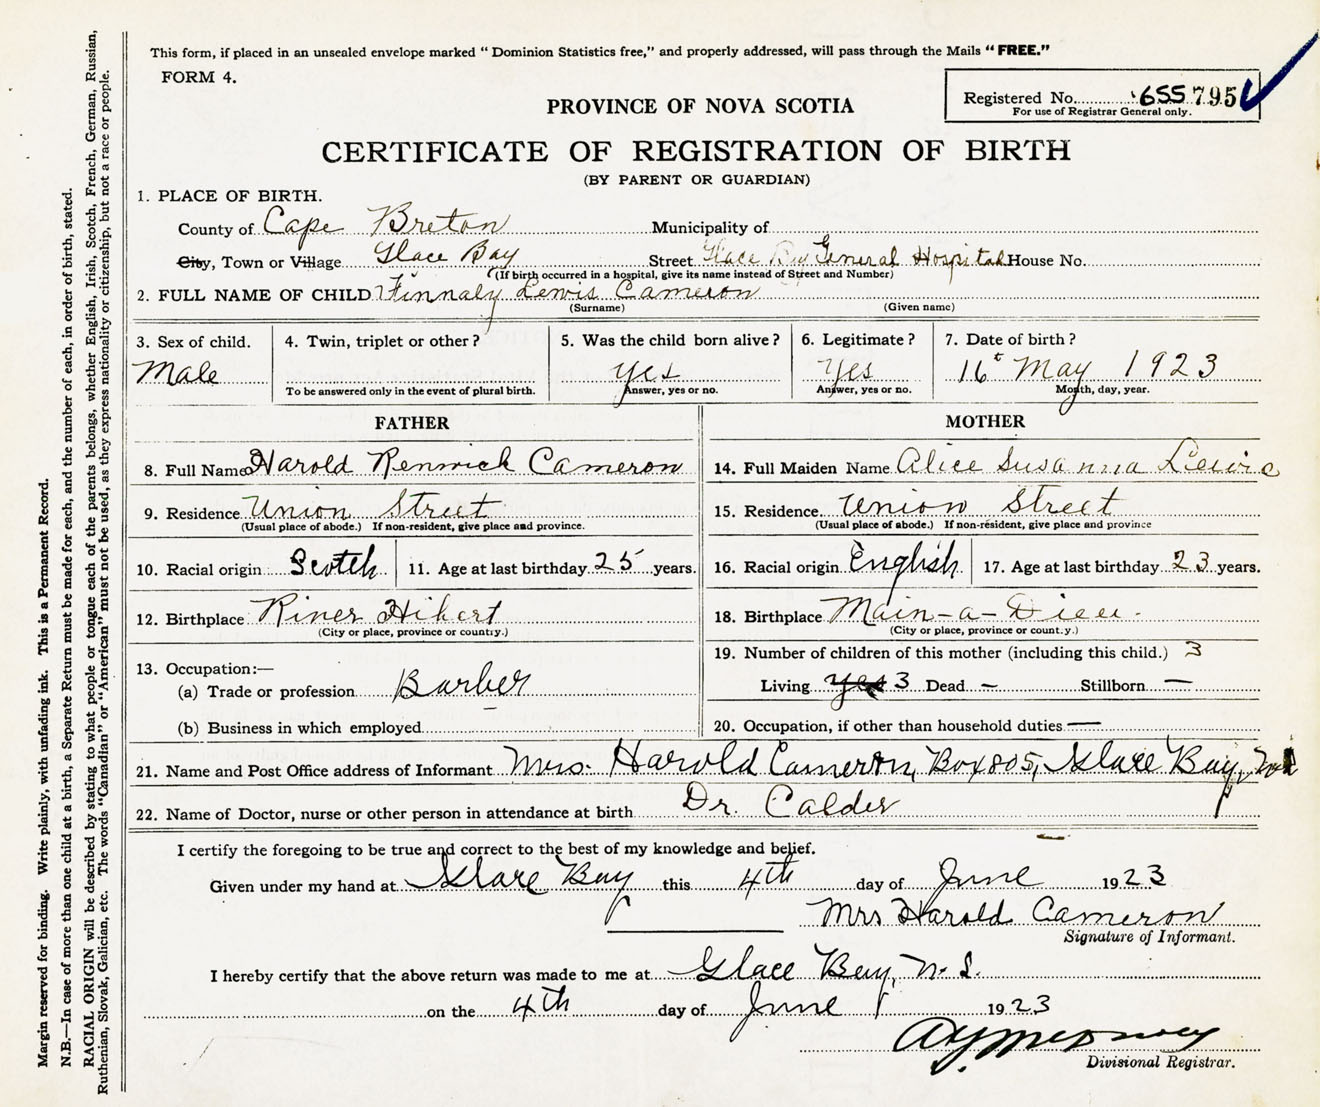 This form, if placed in an unsealed envelope marked "Dominion Statistics free," and properly addressed, will pass through the Mails "FREE."
FORM 4.
Registered No. 655 795
For use of Registrar General only.
PROVINCE OF NOVA SCOTIA
CERTIFICATE OF REGISTRATION OF BIRTH
(BY PARENT OR GUARDIAN)
1. PLACE OF BIRTH.
County of Cape Breton Municipality of
City, Town or Village Glace Bay Street Glace Bay General Hospital House No.
(If birth occurred in a hospital, give its name instead of Street and Number)
2. FULL NAME OF CHILD Finnaly Lewis Cameron
(Surname) (Given name)
3. Sex of child. Male
4. Twin, triplet or other?
To be answered only in the event of plural birth.
5. Was the child born alive? yes
Answer, yes or no.
6. Legitimate? Yes
Answer, yes or no.
7. Date of birth? 16t May 1923
Month, day, year.
FATHER
8. Full Name Harold Renwick Cameron
9. Residence Union Street
(Usual place of abode.) If non-resident, give place and province.
10. Racial origin Scotch 11. Age at last birthday 25 years.
12. Birthplace River Hibert
(City or place, province or country.)
13. Occupation:—
(a) Trade or profession Barber
(b) Business in which employed
MOTHER
14. Full Maiden Name Alice Susanna Lewis
15. Residence Union Street
(Usual place of abode.) If non-resident, give place and province
16. Racial origin English 17. Age at last birthday 23 years.
18. Birthplace Main-a-Dieu.
(City or place, province or country.)
19. Number of children of this mother (including this child.) 3
Living yes 3 Dead — Stillborn —
20. Occupation, if other than household duties —
21. Name and Post Office address of Informant Mrs. Harold Cameron, Box 805, Glace Bay,
22. Name of Doctor, nurse or other person in attendance at birth Dr. Calder
I certify the foregoing to be true and correct to the best of my knowledge and belief.
Given under my hand at Glace Bay this 4th day of June 1923
Mrs Harold Cameron
Signature of Informant.
I hereby certify that the above return was made to me at Glace Bay, N. S.
on the 4th day of June 1923
Divisional Registrar.
Margin reserved for binding. Write plainly, with unfading ink. This is a Permanent Record.
N.B.—In case of more than one child at a birth, a Separate Return must be made for each, and the number of each, in order of birth, stated.
RACIAL ORIGIN will be described by stating to what people or tongue each of the parents belongs, whether English, Irish, Scotch, French, German, Russian,
Ruthenian, Slovak, Galician, etc. The words "Canadian" or "American" must not be used, as they express nationality or citizenship, but not a race or people.